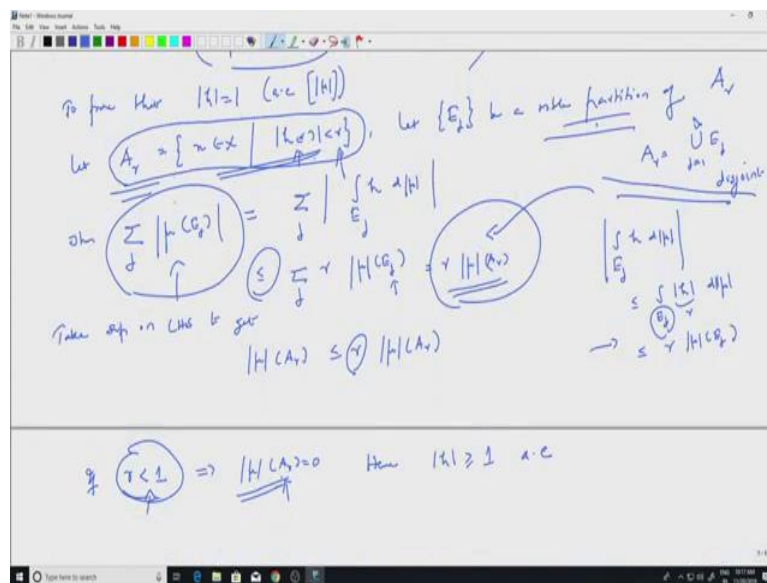 Note1 - Windows Journal
File Edit View Insert Actions Tools Help
To prove that |h|=1 (a.e [|μ|])
Let A_r = { x ∈ X | |h(x)| < r }, Let {E_j} be a mble partition of A_r
A_r = ∪_{j=1}^∞ E_j disjoint
Then Σ_j |μ(E_j)| = Σ_j | ∫_{E_j} h d|μ| |
≤ Σ_j r |μ|(E_j) = r |μ|(A_r)
| ∫_{E_j} h d|μ| |
≤ ∫_{E_j} |h| d|μ|
r
→ ≤ r |μ|(E_j)
Take sup on LHS to get
|μ|(A_r) ≤ r |μ|(A_r)
If r < 1 => |μ|(A_r)=0 Hence |h| ≥ 1 a.e
Type here to search